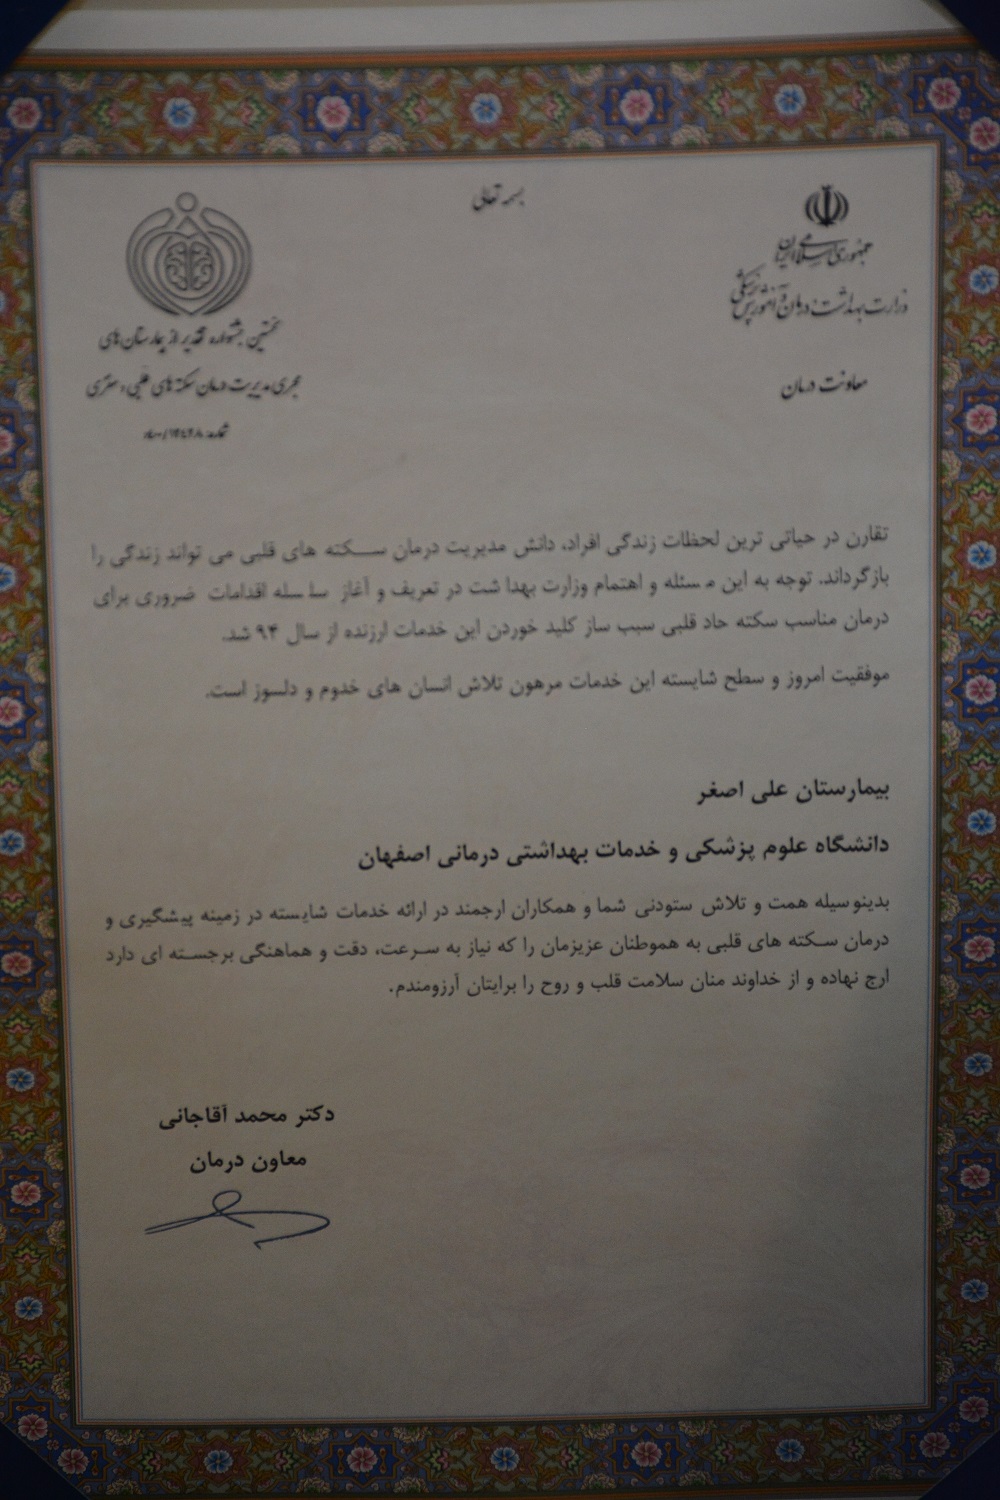 بسمه تعالی
جمهوری اسلامی ایران
وزارت بهداشت، درمان و آموزش پزشکی
معاونت درمان
نخستین جشنواره تقدیر از بیمارستان های
مجری مدیریت درمان سکته های قلبی و مغزی
شماره:
تقارن در حیاتی ترین لحظات زندگی افراد، دانش مدیریت درمان سکته های قلبی می تواند زندگی را
بازگرداند. توجه به این مسئله و اهتمام وزارت بهداشت در تعریف و آغاز سلسله اقدامات ضروری برای
درمان مناسب سکته حاد قلبی سبب ساز کلید خوردن این خدمات ارزنده از سال ۹۴ شد.
موفقیت امروز و سطح شایسته این خدمات مرهون تلاش انسان های خدوم و دلسوز است.
بیمارستان علی اصغر
دانشگاه علوم پزشکی و خدمات بهداشتی درمانی اصفهان
بدینوسیله همت و تلاش ستودنی شما و همکاران ارجمند در ارائه خدمات شایسته در زمینه پیشگیری و
درمان سکته های قلبی به هموطنان عزیزمان را که نیاز به سرعت، دقت و هماهنگی برجسته ای دارد
ارج نهاده و از خداوند منان سلامت قلب و روح را برایتان آرزومندم.
دکتر محمد آقاجانی
معاون درمان